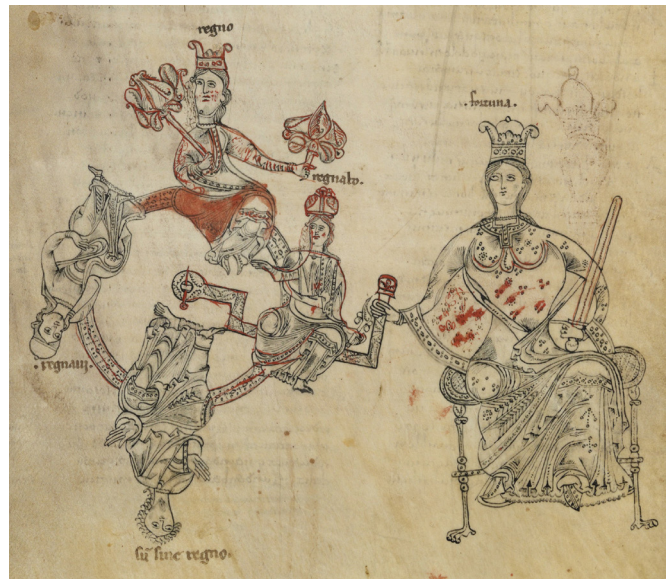 regno
·fortuna·
regnabo·
·regnaui·
sū sine regno·